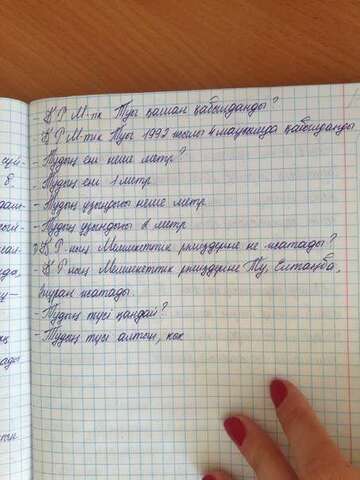 - Қ Р М-тік Туы қашан қабылданды?
- Қ Р М-тік Туы 1992 жылы 4 маусымда қабылданды
- Тудың ені неше метр?
- Тудың ені 1 метр
- Тудың ұзындығы неше метр
- Тудың ұзындығы 2 метр
Қ Р-ның Мемлекеттік рміздеріне не жатады?
- Қ Р ның Мемлекеттік рміздеріне Ту, Елтаңба,
Әнұран жатады.
- Тудың түсі қандай?
- Тудың түсі алтын, көк